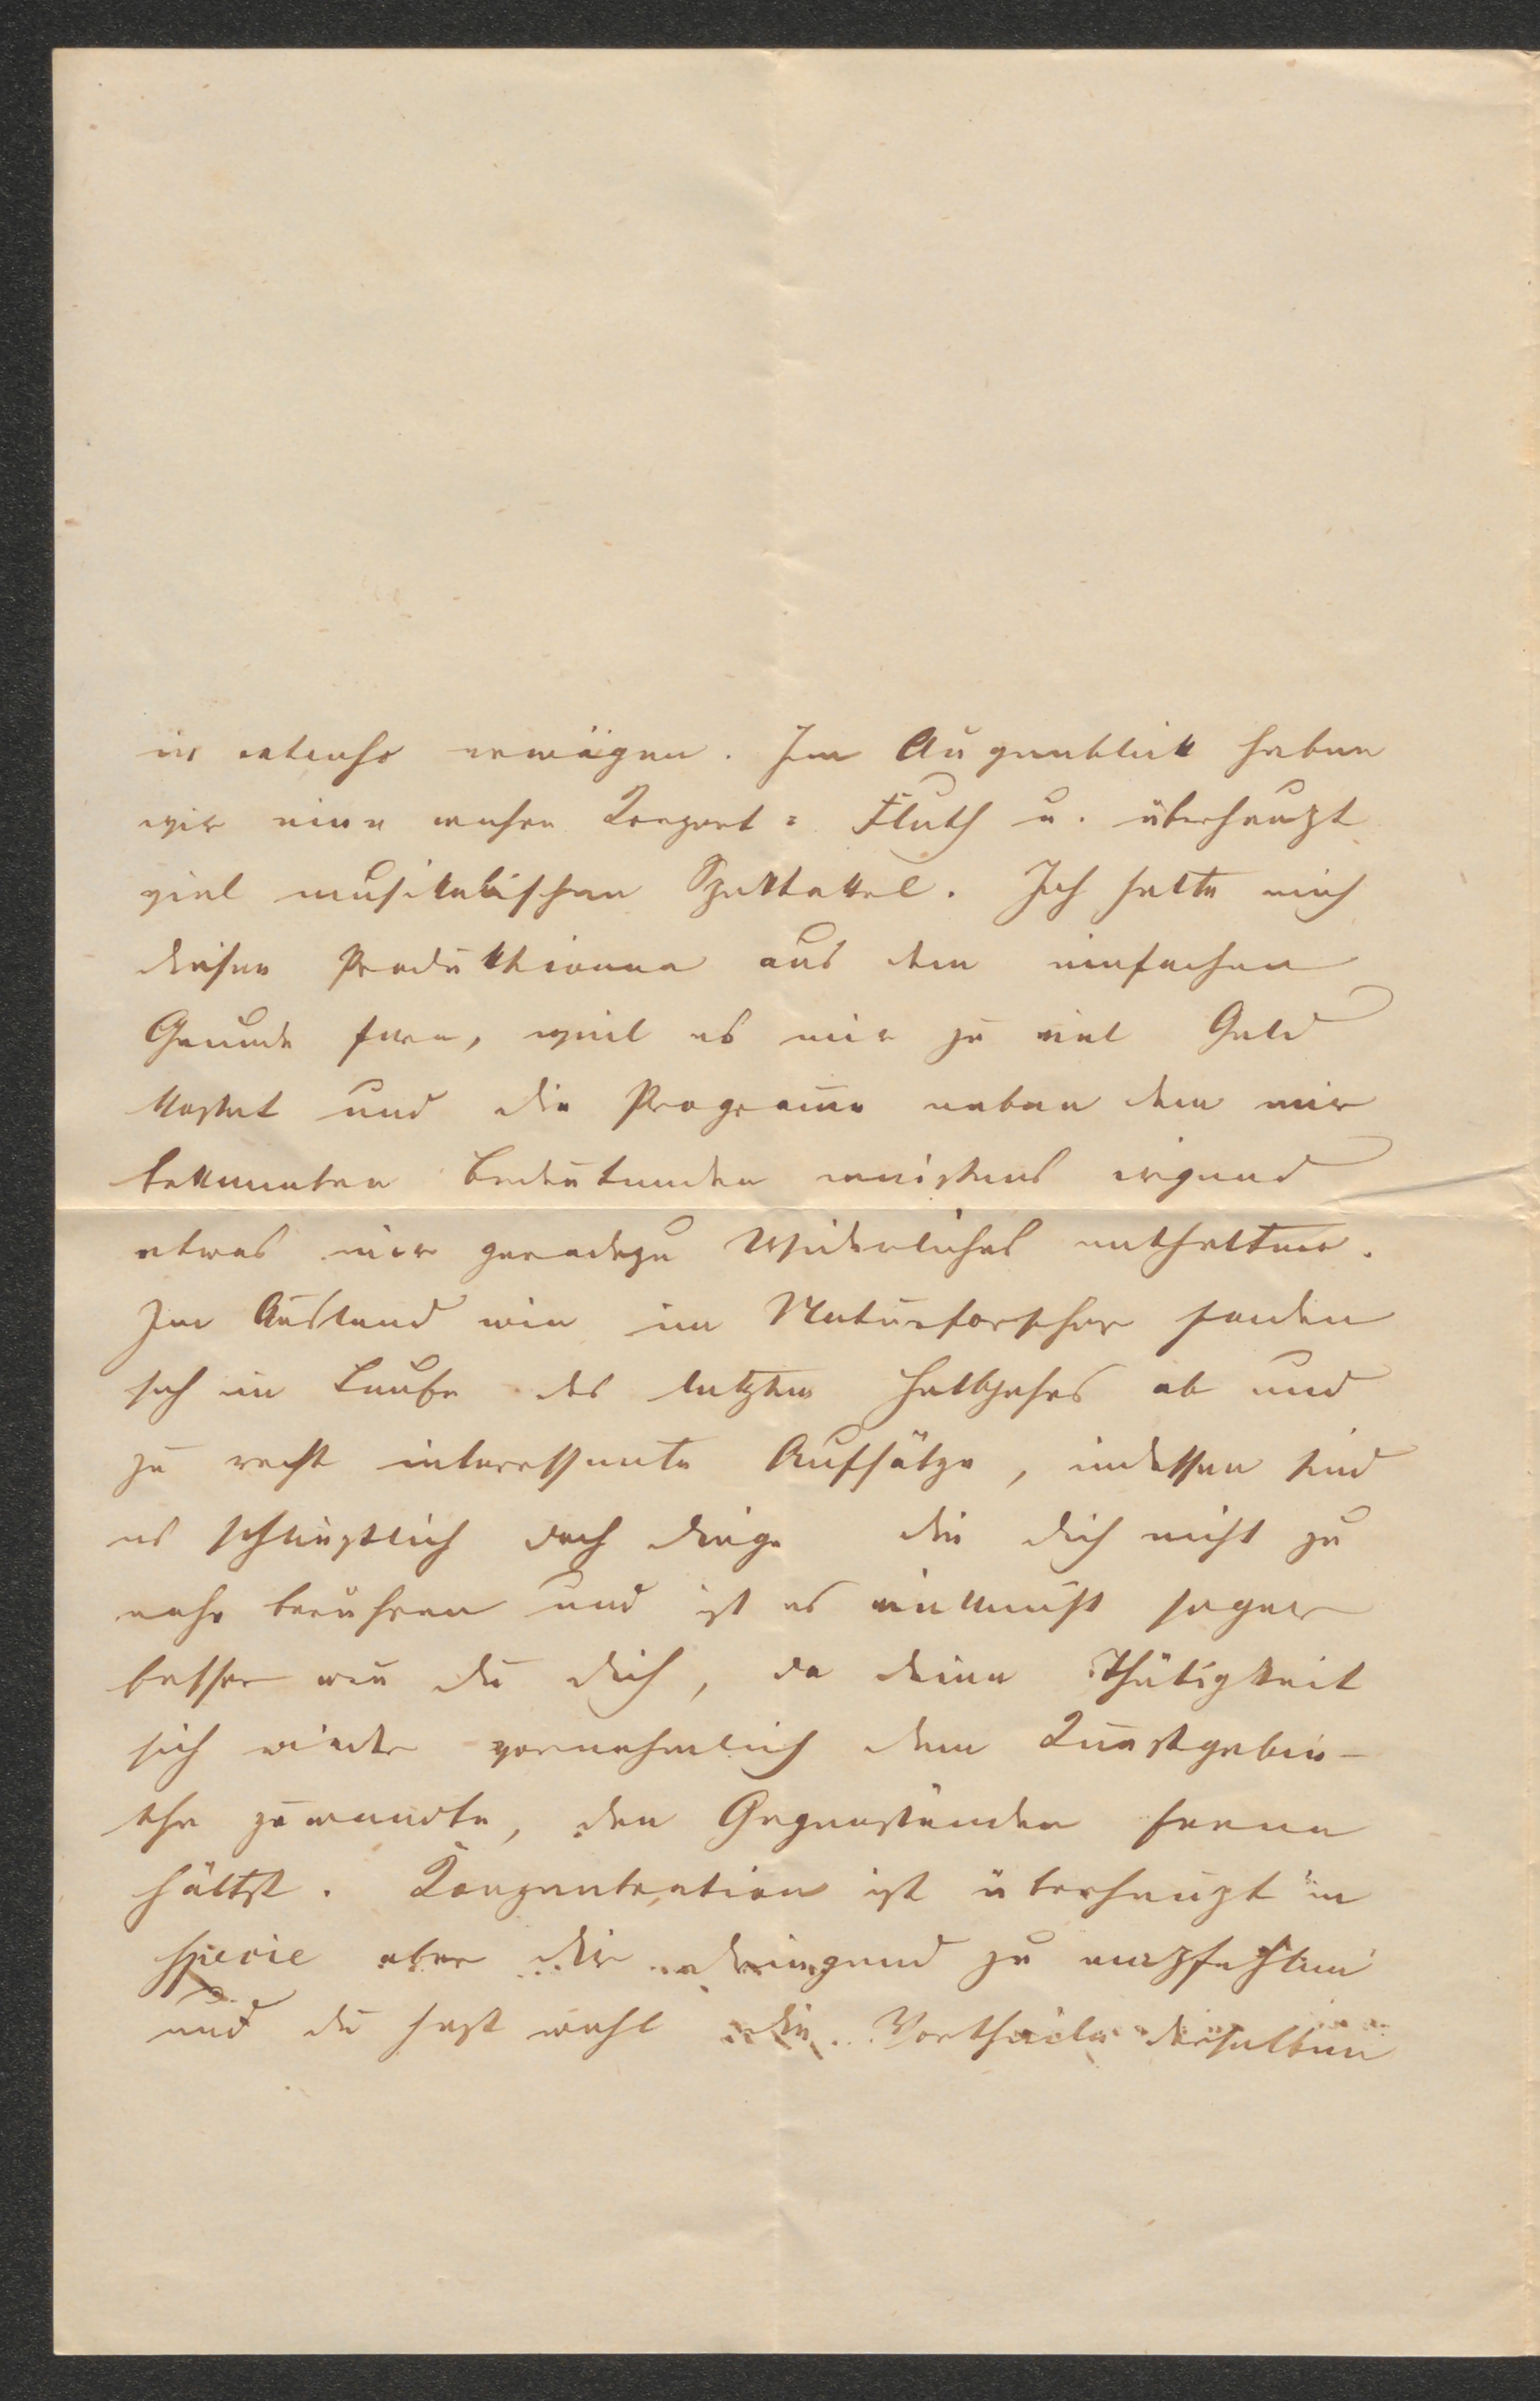 erwägen. Im Augenblick haben
wir eine wahre Konzert= Fluth u. überhaupt
viel musikalischen Spektakel. Ich halte mich
diesen Produktionen aus dem einfachen
Grunde fern, weil es mir zu viel Geld
kostet und die Programme neben dem mir
bekannten Bedeutenden meistens irgend
etwas mir geradezu Widerliches enthalten.
Im Ausland wie im Naturforscher fanden
sich im Laufe des letzten Halbjahrs ab und
zu recht interessante Aufsätze, indessen sind
es schließlich doch Dinge die dich nicht zu
nahe berühren und ist es vielleicht sogar
besser wen du dich, da deine Thätigkeit
sich wieder vornehmlich dem Kunstgebie-
the zuwandte, den Gegenständen ferne
hältst. Konzentration ist überhaupt in
specie aber dir dringend zu empfehlen
und du hast wohl die Vortheile derselben